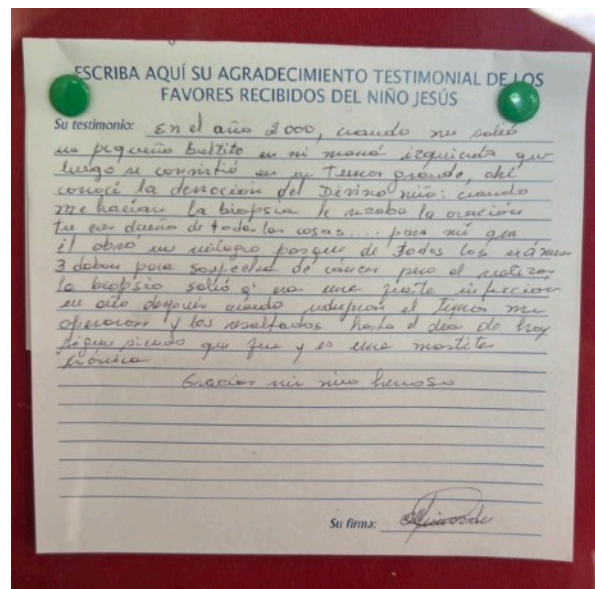 ESCRIBA AQUÍ SU AGRADECIMIENTO TESTIMONIAL DE LOS
FAVORES RECIBIDOS DEL NIÑO JESÚS
Su testimonio: En el año 2000, cuando me salió
un pequeño bultito en mi mama izquierda que
luego se convirtió en un tumor grande, ahí
conocí la devoción del Divino niño; cuando
me hacían la biopsia le rezaba la oración
tu eres dueño de todas las cosas.... para mí que
él obro un milagro porque de todos los exámenes
3 daban para sospecha de cáncer pero al realizar
la biopsia salió q' era una fuerte infección
un año después cuando redujeron el tumor me
operaron y los resultados hasta el día de hoy
siguen siendo que fue y es una mastitis
crónica
Gracias mi niño hermoso
Su firma: